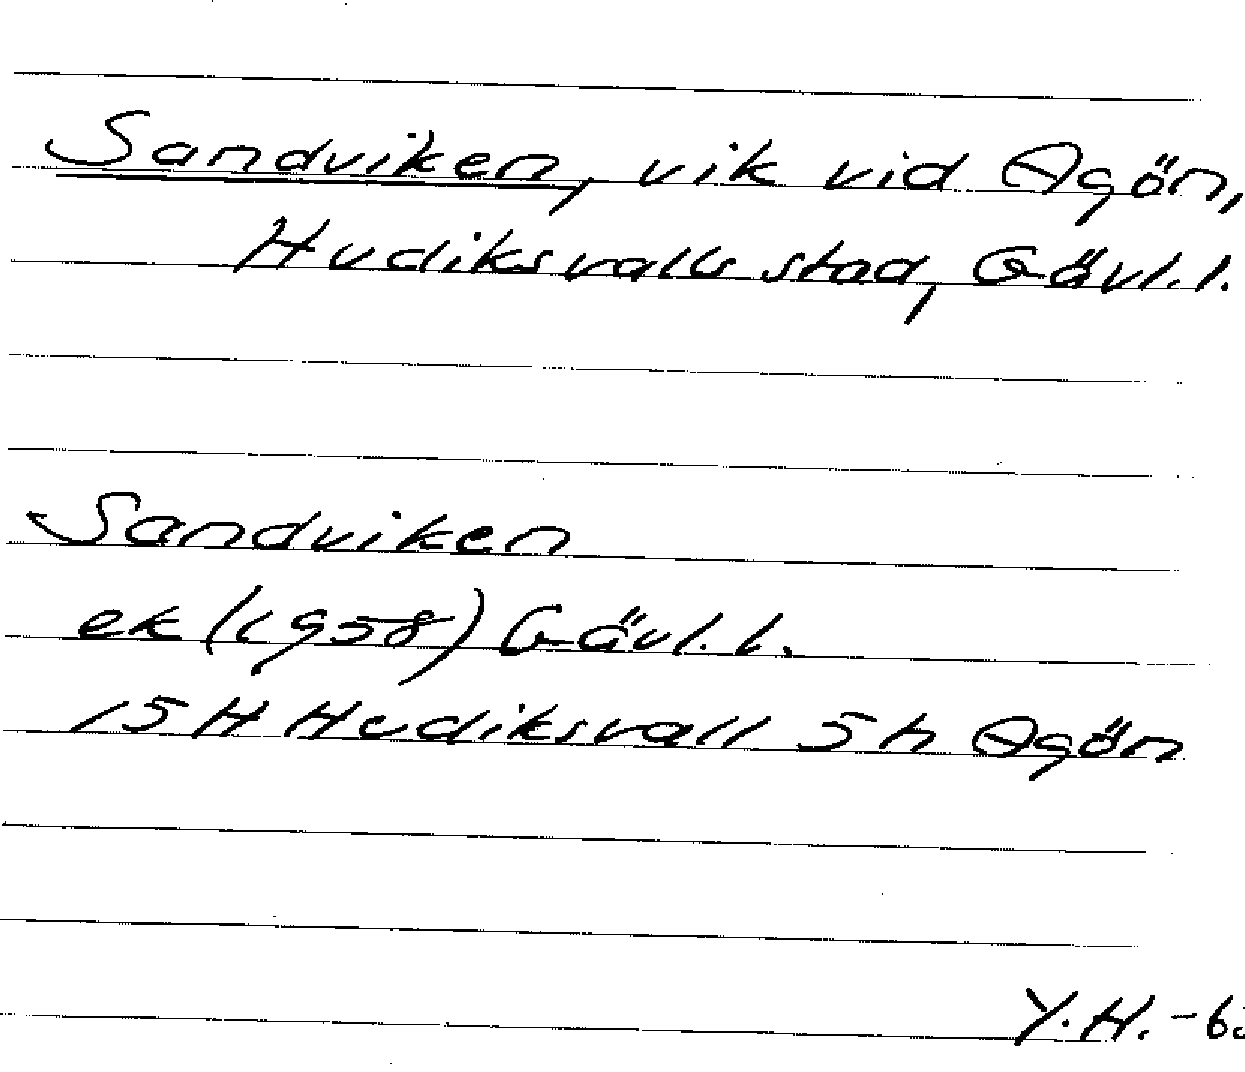 Sandviken, vik vid Agön,
Hudiksvalls stad, Gävl.l.
Sandviken
ek (1958) Gävl.l.
15H Hudiksvall 5h Agön
Y.H.